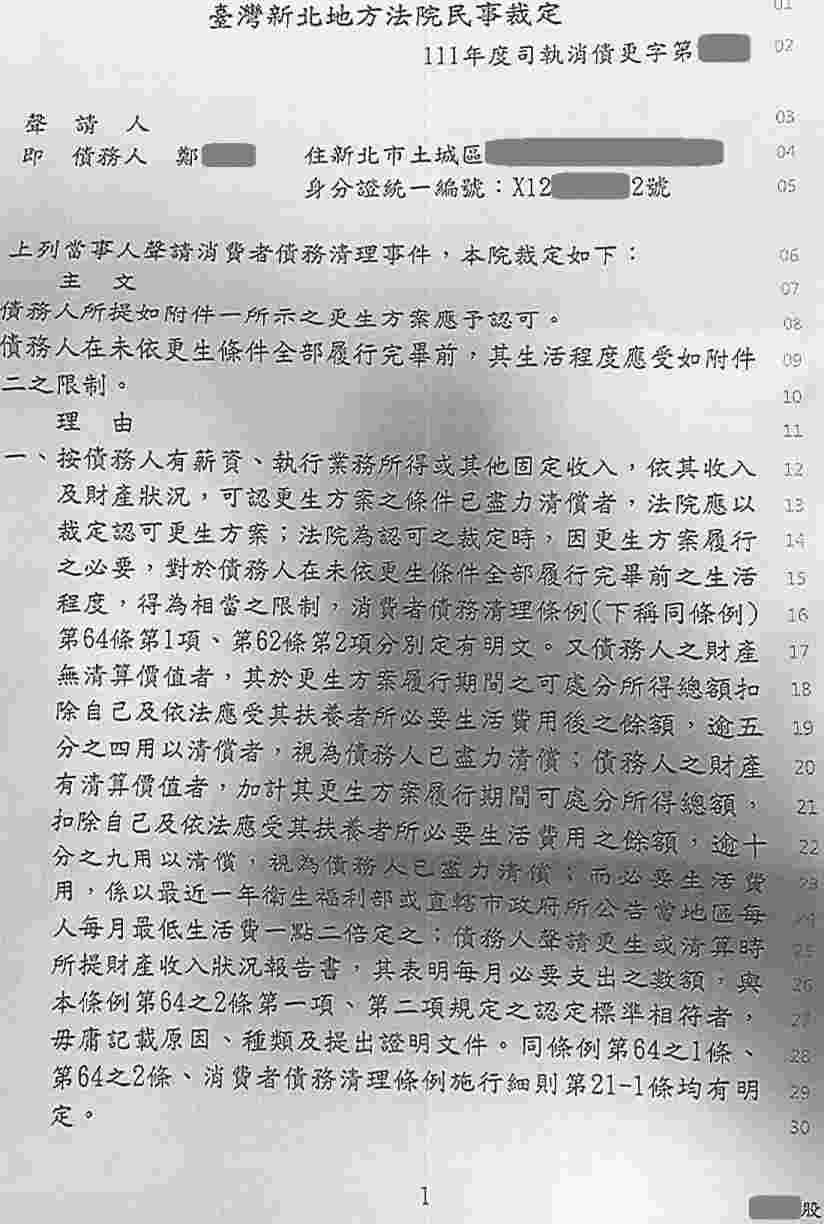 臺灣新北地方法院民事裁定 01
111年度司執消債更字第 02
聲請人 03
即 債務人 鄭 住新北市土城區 04
身分證統一編號：X12 2號 05
上列當事人聲請消費者債務清理事件，本院裁定如下： 06
主文 07
債務人所提如附件一所示之更生方案應予認可。 08
債務人在未依更生條件全部履行完畢前，其生活程度應受如附件 09
二之限制。 10
理由 11
一、按債務人有薪資、執行業務所得或其他固定收入，依其收入 12
及財產狀況，可認更生方案之條件已盡力清償者，法院應以 13
裁定認可更生方案；法院為認可之裁定時，因更生方案履行 14
之必要，對於債務人在未依更生條件全部履行完畢前之生活 15
程度，得為相當之限制，消費者債務清理條例(下稱同條例) 16
第64條第1項、第62條第2項分別定有明文。又債務人之財產 17
無清算價值者，其於更生方案履行期間之可處分所得總額扣 18
除自己及依法應受其扶養者所必要生活費用後之餘額，逾五 19
分之四用以清償者，視為債務人已盡力清償；債務人之財產 20
有清算價值者，加計其更生方案履行期間可處分所得總額， 21
扣除自己及依法應受其扶養者所必要生活費用之餘額，逾十 22
分之九用以清償，視為債務人已盡力清償；而必要生活費 23
用，係以最近一年衛生福利部或直轄市政府所公告當地區每 24
人每月最低生活費一點二倍定之；債務人聲請更生或清算時 25
所提財產收入狀況報告書，其表明每月必要支出之數額，與 26
本條例第64之2條第一項、第二項規定之認定標準相符者， 27
毋庸記載原因、種類及提出證明文件。同條例第64之1條、 28
第64之2條、消費者債務清理條例施行細則第21-1條均有明 29
定。 30
1
股